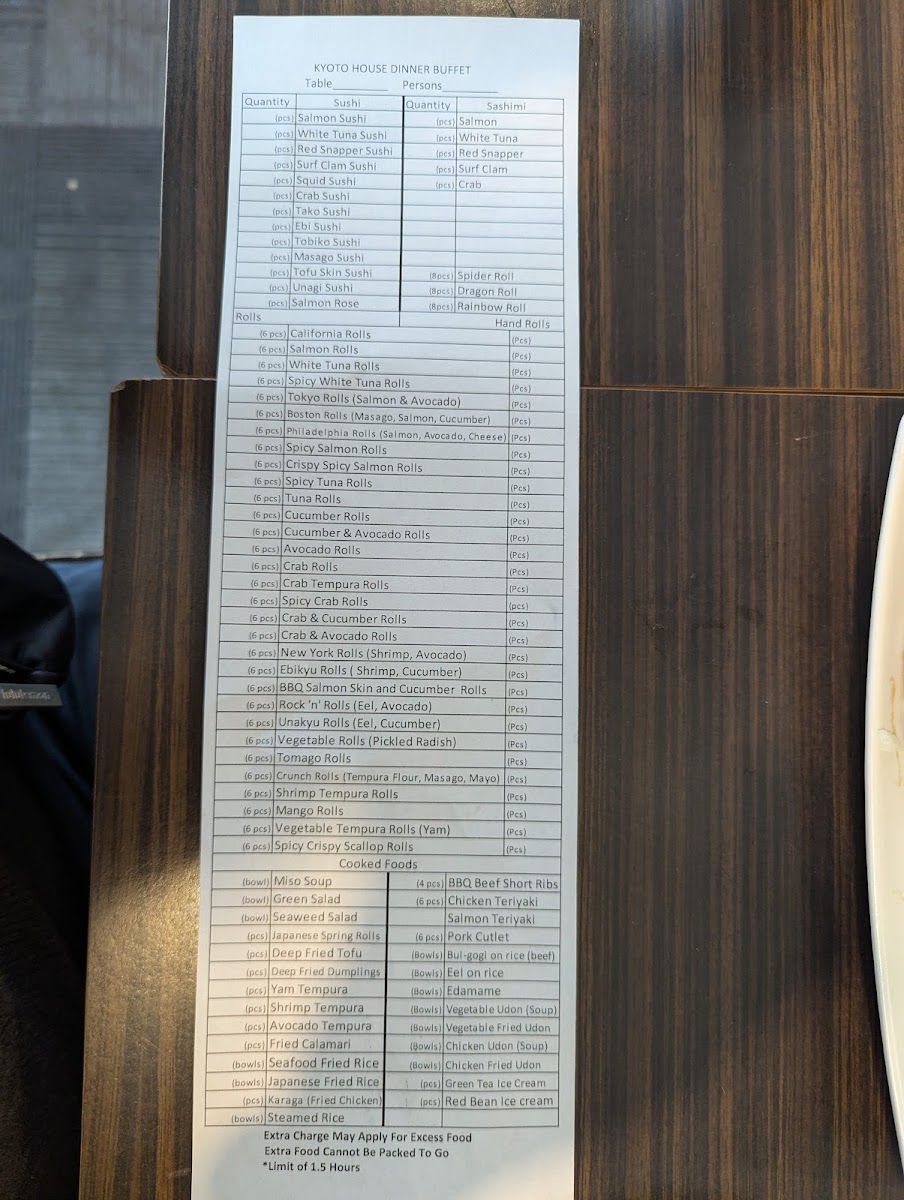 KYOTO HOUSE DINNER BUFFET
Table________ Persons________
Quantity Sushi Quantity Sashimi
(pcs) Salmon Sushi (pcs) Salmon
(pcs) White Tuna Sushi (pcs) White Tuna
(pcs) Red Snapper Sushi (pcs) Red Snapper
(pcs) Surf Clam Sushi (pcs) Surf Clam
(pcs) Squid Sushi (pcs) Crab
(pcs) Crab Sushi
(pcs) Tako Sushi
(pcs) Ebi Sushi
(pcs) Tobiko Sushi
(pcs) Masago Sushi
(pcs) Tofu Skin Sushi (8pcs) Spider Roll
(pcs) Unagi Sushi (8pcs) Dragon Roll
(pcs) Salmon Rose (8pcs) Rainbow Roll
Rolls Hand Rolls
(6 pcs) California Rolls (Pcs)
(6 pcs) Salmon Rolls (Pcs)
(6 pcs) White Tuna Rolls (Pcs)
(6 pcs) Spicy White Tuna Rolls (Pcs)
(6 pcs) Tokyo Rolls (Salmon & Avocado) (Pcs)
(6 pcs) Boston Rolls (Masago, Salmon, Cucumber) (Pcs)
(6 pcs) Philadelphia Rolls (Salmon, Avocado, Cheese) (Pcs)
(6 pcs) Spicy Salmon Rolls (Pcs)
(6 pcs) Crispy Spicy Salmon Rolls (Pcs)
(6 pcs) Spicy Tuna Rolls (Pcs)
(6 pcs) Tuna Rolls (Pcs)
(6 pcs) Cucumber Rolls (Pcs)
(6 pcs) Cucumber & Avocado Rolls (Pcs)
(6 pcs) Avocado Rolls (Pcs)
(6 pcs) Crab Rolls (Pcs)
(6 pcs) Crab Tempura Rolls (Pcs)
(6 pcs) Spicy Crab Rolls (pcs)
(6 pcs) Crab & Cucumber Rolls (Pcs)
(6 pcs) Crab & Avocado Rolls (Pcs)
(6 pcs) New York Rolls (Shrimp, Avocado) (Pcs)
(6 pcs) Ebikyu Rolls ( Shrimp, Cucumber) (Pcs)
(6 pcs) BBQ Salmon Skin and Cucumber Rolls (Pcs)
(6 pcs) Rock 'n' Rolls (Eel, Avocado) (Pcs)
(6 pcs) Unakyu Rolls (Eel, Cucumber) (Pcs)
(6 pcs) Vegetable Rolls (Pickled Radish) (Pcs)
(6 pcs) Tomago Rolls (Pcs)
(6 pcs) Crunch Rolls (Tempura Flour, Masago, Mayo) (Pcs)
(6 pcs) Shrimp Tempura Rolls (Pcs)
(6 pcs) Mango Rolls (Pcs)
(6 pcs) Vegetable Tempura Rolls (Yam) (Pcs)
(6 pcs) Spicy Crispy Scallop Rolls (Pcs)
Cooked Foods
(bowl) Miso Soup (4 pcs) BBQ Beef Short Ribs
(bowl) Green Salad (6 pcs) Chicken Teriyaki
(bowl) Seaweed Salad Salmon Teriyaki
(pcs) Japanese Spring Rolls (6 pcs) Pork Cutlet
(pcs) Deep Fried Tofu (Bowls) Bul-gogi on rice (beef)
(pcs) Deep Fried Dumplings (Bowls) Eel on rice
(pcs) Yam Tempura (Bowls) Edamame
(pcs) Shrimp Tempura (Bowls) Vegetable Udon (Soup)
(pcs) Avocado Tempura (Bowls) Vegetable Fried Udon
(pcs) Fried Calamari (Bowls) Chicken Udon (Soup)
(bowls) Seafood Fried Rice (Bowls) Chicken Fried Udon
(bowls) Japanese Fried Rice (pcs) Green Tea Ice Cream
(pcs) Karaga (Fried Chicken) (pcs) Red Bean Ice cream
(bowls) Steamed Rice
Extra Charge May Apply For Excess Food
Extra Food Cannot Be Packed To Go
*Limit of 1.5 Hours